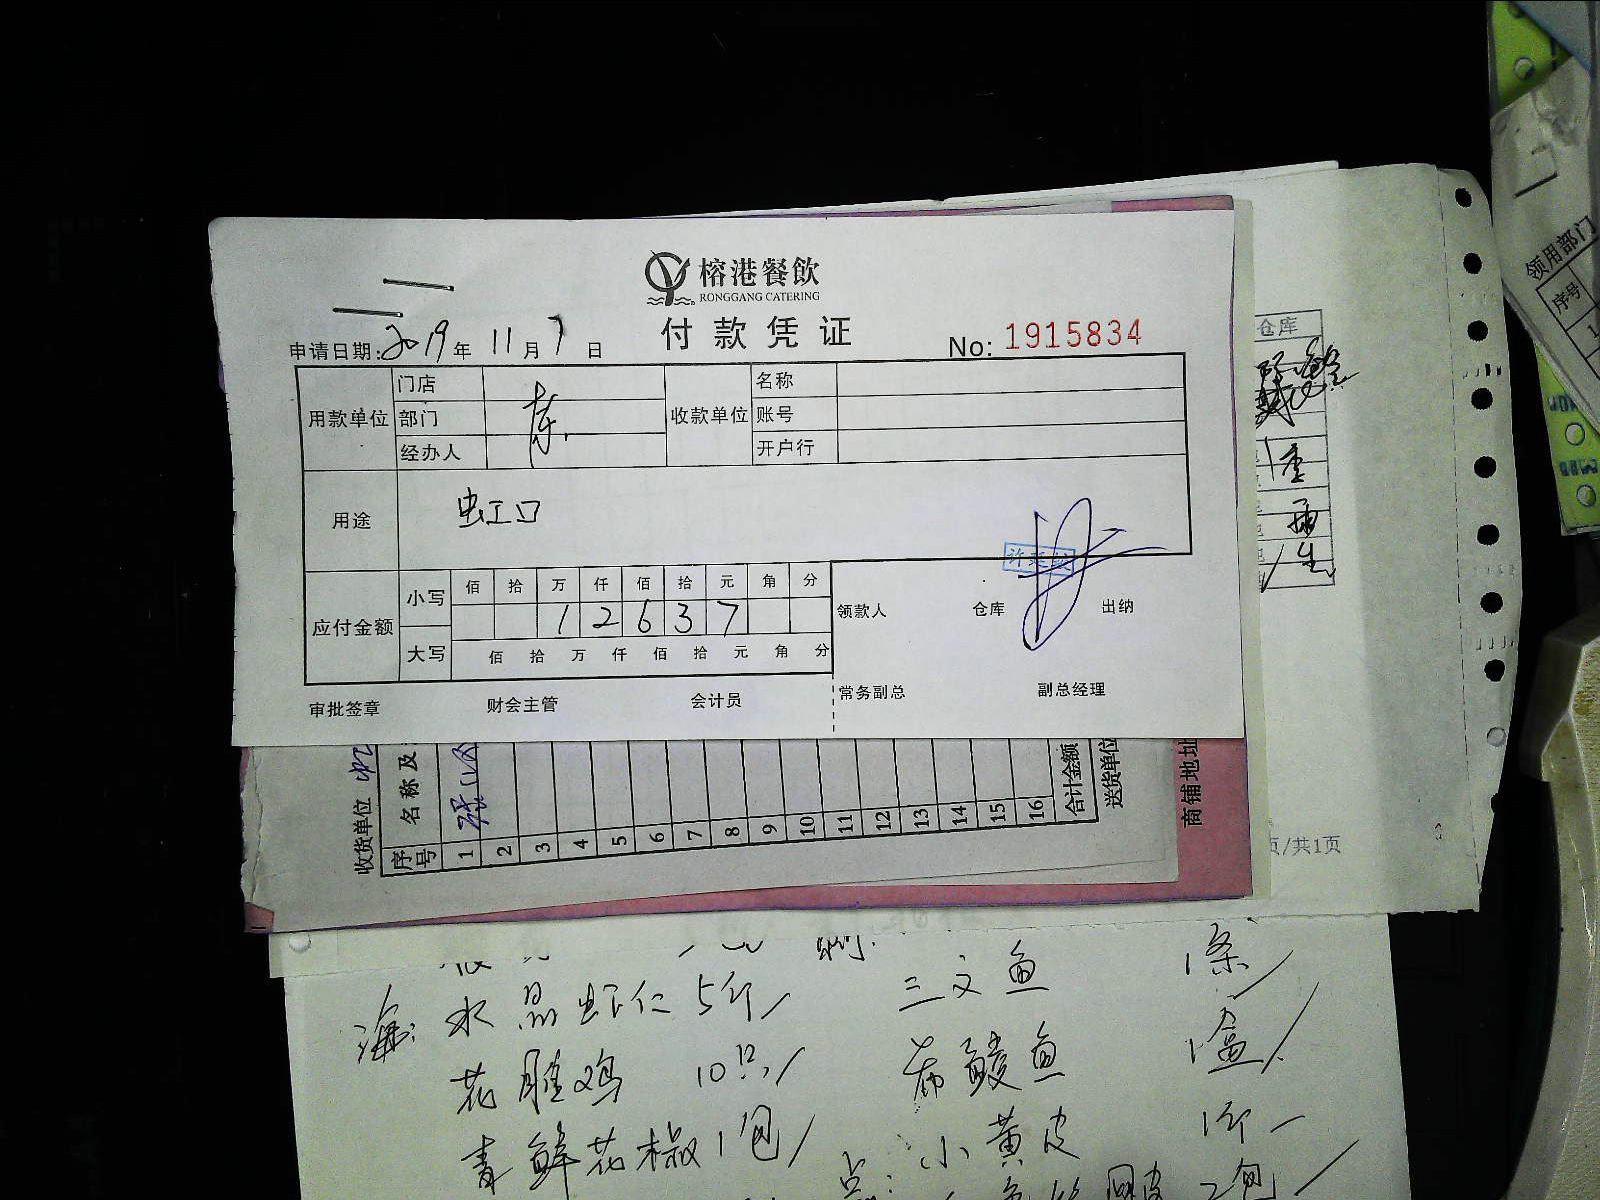 榕港餐飲
RONGGANG CATERING
付款凭证
申请日期:2019年11月7日
No: 1915834
用款单位 门店 收款单位 名称
部门 账号
经办人 开户行
用途 虹口
应付金额 小写 佰 拾 万 仟 佰 拾 元 角 分
1 2 6 3 7
大写 佰 拾 万 仟 佰 拾 元 角 分
领款人 仓库 出纳
审批签章 财会主管 会计员 常务副总 副总经理
收货单位
序号 名称及
1
2
3
4
5
6
7
8
9
10
11
12
13
14
15
16
合计金额
送货单位
商铺地址
仓库
页/共1页
领用部门
序号
1
海: 水晶虾仁 5斤 三文鱼 1条
花雕鸡 10只 鲮鱼 1盒
青鲜花椒 1包 点: 小黄皮 1斤
2包